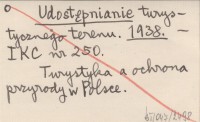 Udostępnianie turys-
tycznego terenu. 1938. —
IKC nr 250.
Turystyka a ochrona
przyrody w Polsce.